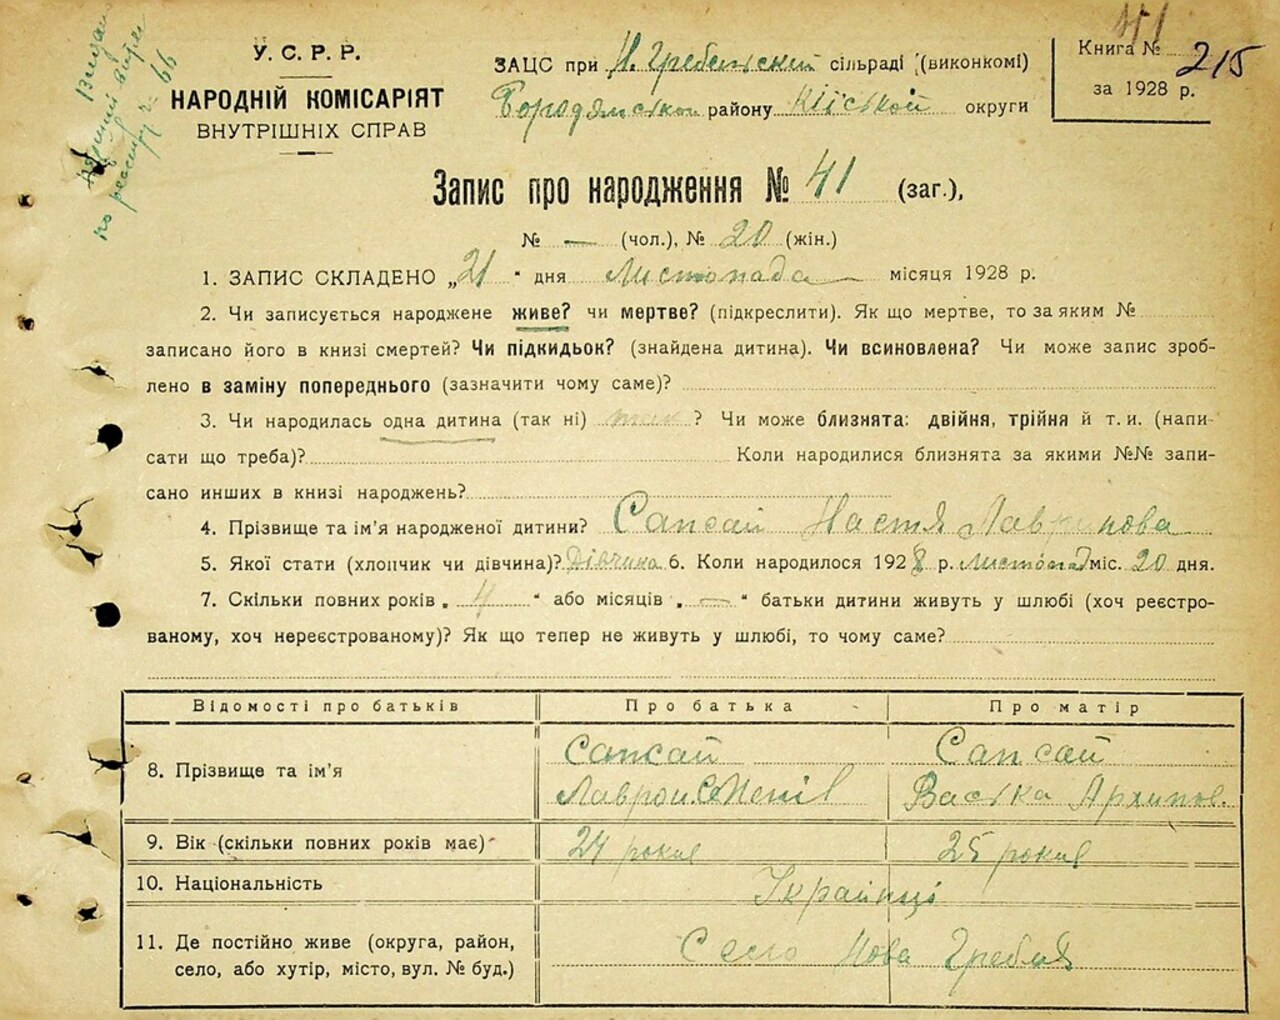 41
У.С.Р.Р.
НАРОДНІЙ КОМІСАРІЯТ
ВНУТРІШНІХ СПРАВ
ЗАЦС при Н. Гребельській сільраді (виконкомі)
Бородянсько району Київської округи
Книга № 215
за 1928 р.
Запис про народження № 41 (заг.),
№ — (чол.), № 20 (жін.)
1. ЗАПИС СКЛАДЕНО „21" дня Листопада місяця 1928 р.
2. Чи записується народжене живе? чи мертве? (підкреслити). Як що мертве, то за яким №
записано його в книзі смертей? Чи підкидьок? (знайдена дитина). Чи всиновлена? Чи може запис зроб-
лено в заміну попереднього (зазначити чому саме)?
3. Чи народилась одна дитина (так ні) так ? Чи може близнята: двійня, трійня й т. и. (напи-
сати що треба)? Коли народилися близнята за якими №№ запи-
сано инших в книзі народжень?
4. Прізвище та ім'я народженої дитини? Сапсай Настя
5. Якої стати (хлопчик чи дівчина)? Дівчина 6. Коли народилося 1928 р. Листопад міс. 20 дня.
7. Скільки повних років „ 4 " або місяців „ — " батьки дитини живуть у шлюбі (хоч реєстро-
ваному, хоч нереєстрованому)? Як що тепер не живуть у шлюбі, то чому саме?
Відомості про батьків Про батька Про матір
8. Прізвище та ім'я Сапсай Сапсай
Васька Архипов.
9. Вік (скільки повних років має) 24 роки 25 років
10. Національність Українці
11. Де постійно живе (округа, район,
село, або хутір, місто, вул. № буд.) Село Нова Гребля